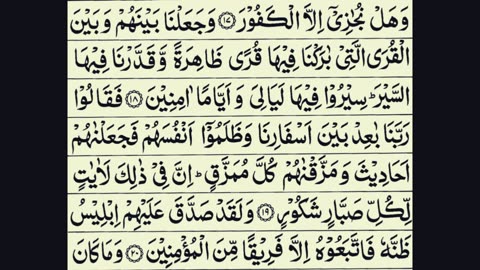 وَهَلۡ نُجٰزِىۡۤ اِلَّا الۡـكَفُوۡرَ ﴿۱۷﴾ وَجَعَلۡنَا بَيۡنَهُمۡ وَبَيۡنَ
الۡقُرَى الَّتِىۡ بٰرَكۡنَا فِيۡهَا قُرًى ظَاهِرَةً وَّقَدَّرۡنَا فِيۡهَا
السَّيۡرَ ؕ سِيۡرُوۡا فِيۡهَا لَيَالِىَ وَاَيَّامًا اٰمِنِيۡنَ ﴿۱۸﴾ فَقَالُوۡا
رَبَّنَا بٰعِدۡ بَيۡنَ اَسۡفَارِنَا وَظَلَمُوۡۤا اَنۡفُسَهُمۡ فَجَعَلۡنٰهُمۡ
اَحَادِيۡثَ وَمَزَّقۡنٰهُمۡ كُلَّ مُمَزَّقٍ ؕ اِنَّ فِىۡ ذٰلِكَ لَاٰيٰتٍ
لِّـكُلِّ صَبَّارٍ شَكُوۡرٍ ﴿۱۹﴾ وَلَقَدۡ صَدَّقَ عَلَيۡهِمۡ اِبۡلِيۡسُ
ظَنَّهٗ فَاتَّبَعُوۡهُ اِلَّا فَرِيۡقًا مِّنَ الۡمُؤۡمِنِيۡنَ ﴿۲۰﴾ وَمَا كَانَ